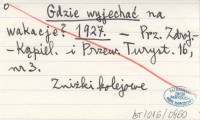 Gdzie wyjechać na
wakacje? 1927. – Prz. Zdroj.-
-Kąpiel. i Przew. Turyst. 16,
nr 3.
Zniżki kolejowe